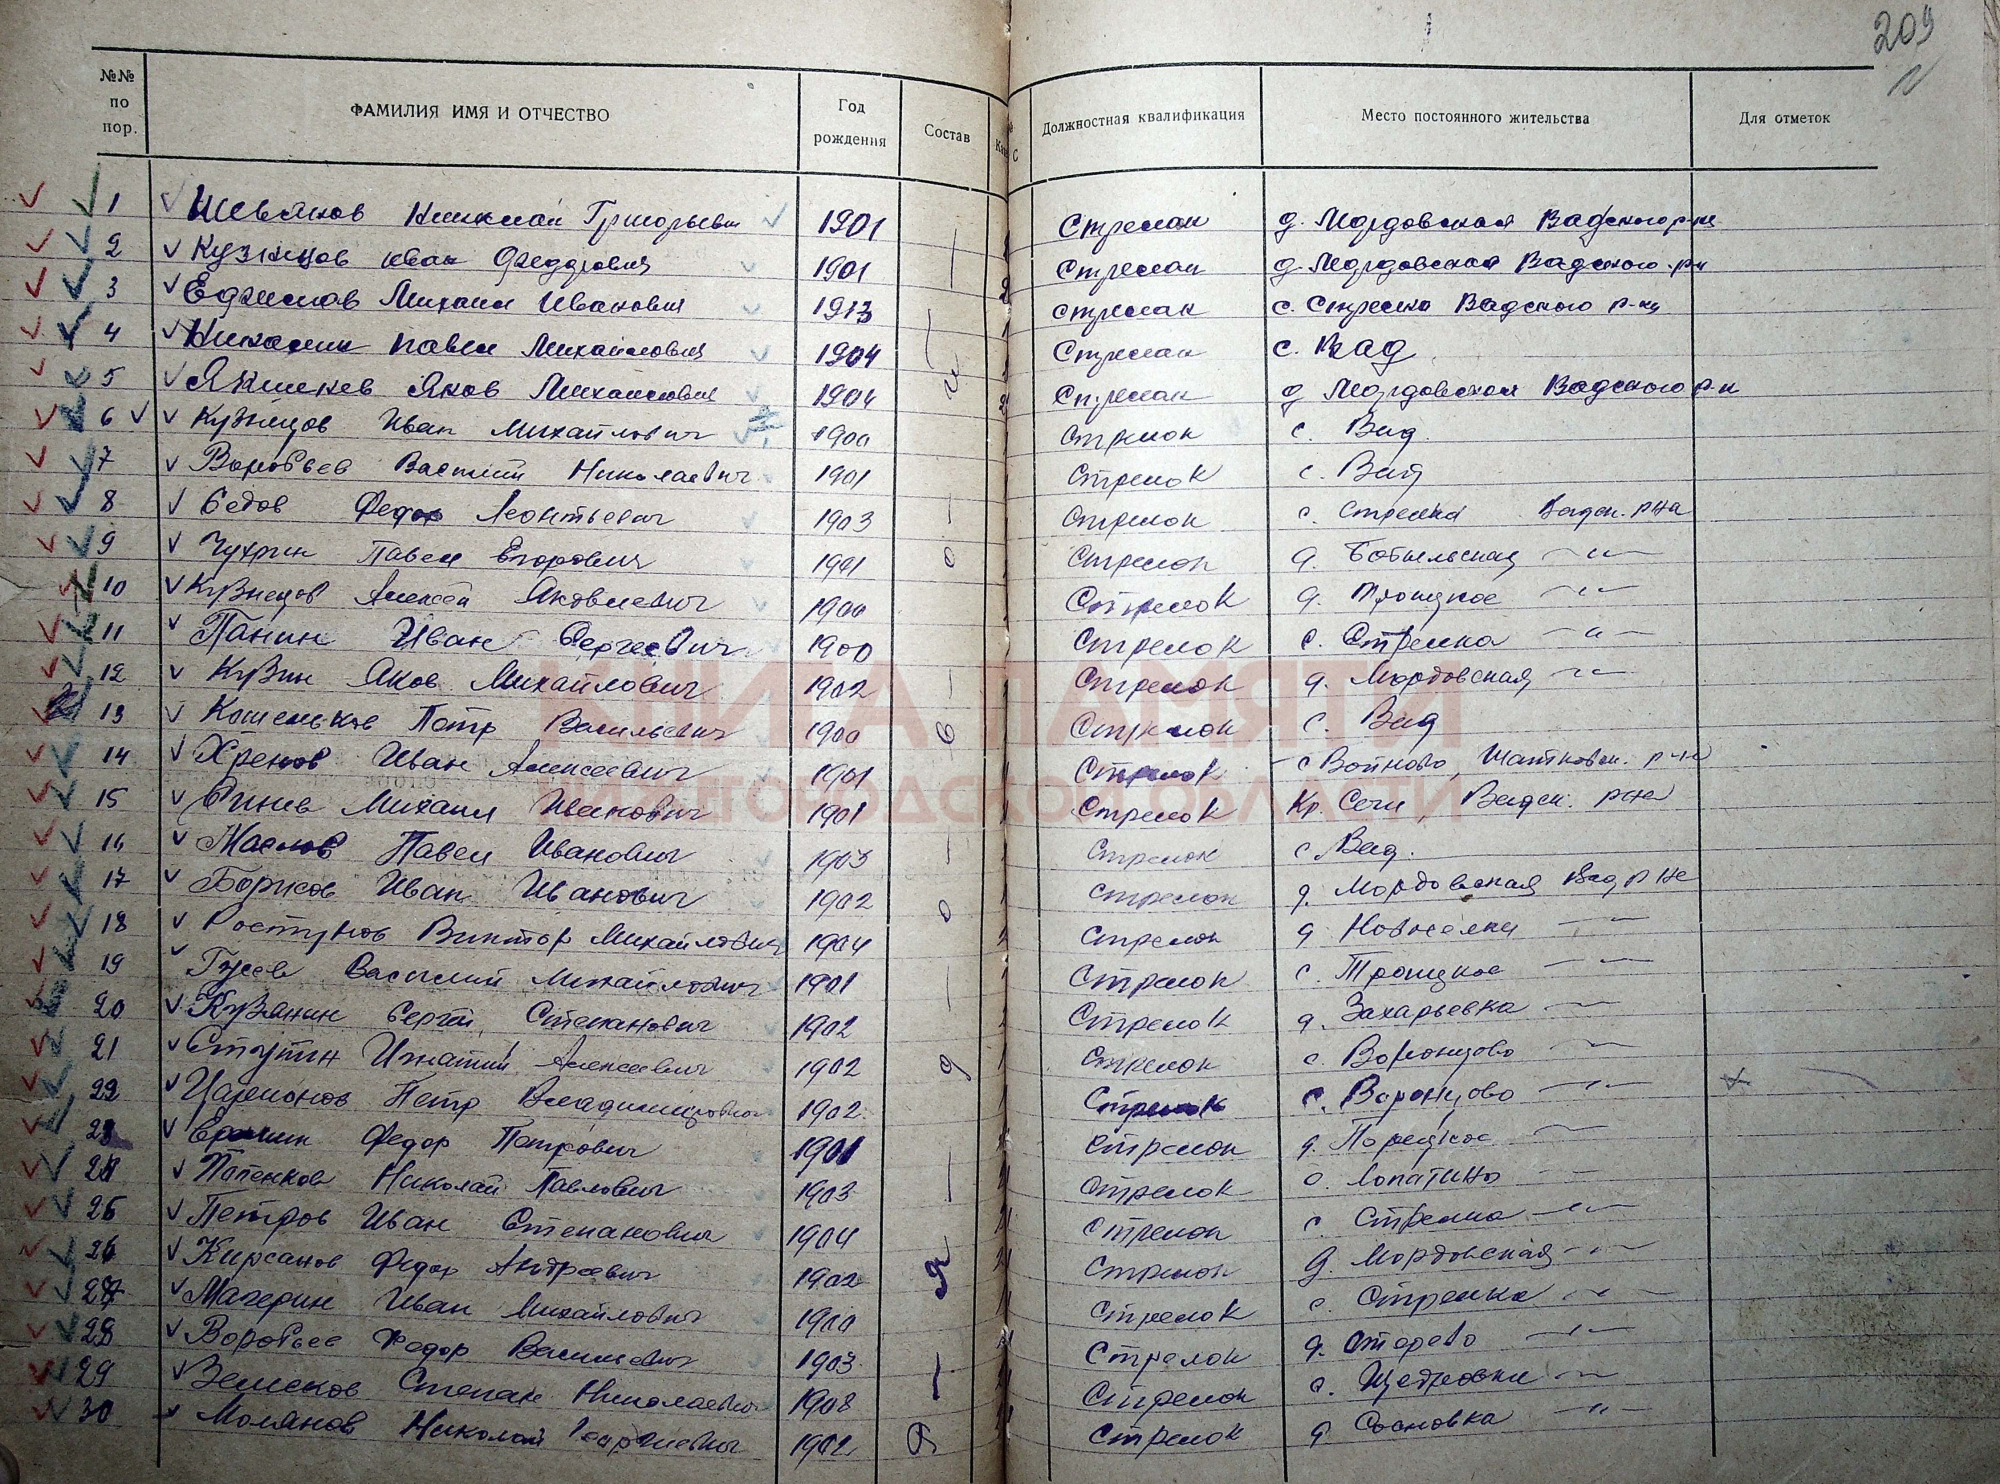 209
№№ по пор. ФАМИЛИЯ ИМЯ И ОТЧЕСТВО Год рождения Состав Должностная квалификация Место постоянного жительства Для отметок
1 Николай Григорьевич 1901 Стрелок д. Мордовская Вадского р-на
2 Кузнецов Иван Федорович 1901 Стрелок д. Мордовская Вадского р-н
3 Ефимов Михаил Иванович 1913 Стрелок с. Стрелка Вадского р-на
4 Никалин Павел Михайлович 1904 Стрелок с. Вад
5 Якимкев Яков Михайлович 1904 Стрелок д Мордовская Вадского р-н
6 Кузнецов Иван Михайлович 1900 Стрелок с. Вад
7 Воробьев Василий Николаевич 1901 Стрелок с. Вад
8 Седов Федор Леонтьевич 1903 Стрелок с. Стрелка Вадск. р-на
9 Чухрин Павел Егорович 1901 Стрелок д. Бобыльская —"—
10 Кузнецов Алексей Яковлевич 1900 Стрелок д. Троицкое —"—
11 Панин Иван Сергеевич 1900 Стрелок с. Стрелка —"—
12 Кузин Яков Михайлович 1902 Стрелок д. Мордовская —"—
13 Кошельков Петр Васильевич 1900 Стрелок с. Вад
14 Хренов Иван Алексеевич 1901 Стрелок с Войново, Шатковск. р-на
15 Синев Михаил Иванович 1901 Стрелок Кр. Сечи, Вадск. р-на
16 Маслов Павел Иванович 1903 Стрелок с. Вад.
17 Борисов Иван Иванович 1902 Стрелок д. Мордовская Вад. р-на
18 Ростунов Виктор Михайлович 1904 Стрелок д Новоселки —"—
19 Гусев Василий Михайлович 1901 Стрелок с. Троицкое —"—
20 Кузянин Сергей Степанович 1902 Стрелок д. Захарьевка —"—
21 Ступин Игнатий Алексеевич 1902 Стрелок с. Воронцово —"—
22 Царионов Петр Владимирович 1902 Стрелок с. Воронцово —"—
23 Федор Петрович 1901 Стрелок д. —"—
24 Папенков Николай Павлович 1903 Стрелок с. Лопатино —"—
25 Петров Иван Степанович 1904 Стрелок с Стрелка —"—
26 Кирсанов Федор Андреевич 1902 Стрелок д. Мордовская —"—
27 Магерин Иван Михайлович 1900 Стрелок с. Стрелка —"—
28 Воробьев Федор Васильевич 1903 Стрелок д. Отарево —"—
29 Земсков Степан Николаевич 1908 Стрелок Щедровки —"—
30 Молянов Николай Георгиевич 1902 Стрелок д Сосновка —"—
КНИГА ПАМЯТИ
НИЖЕГОРОДСКОЙ ОБЛАСТИ